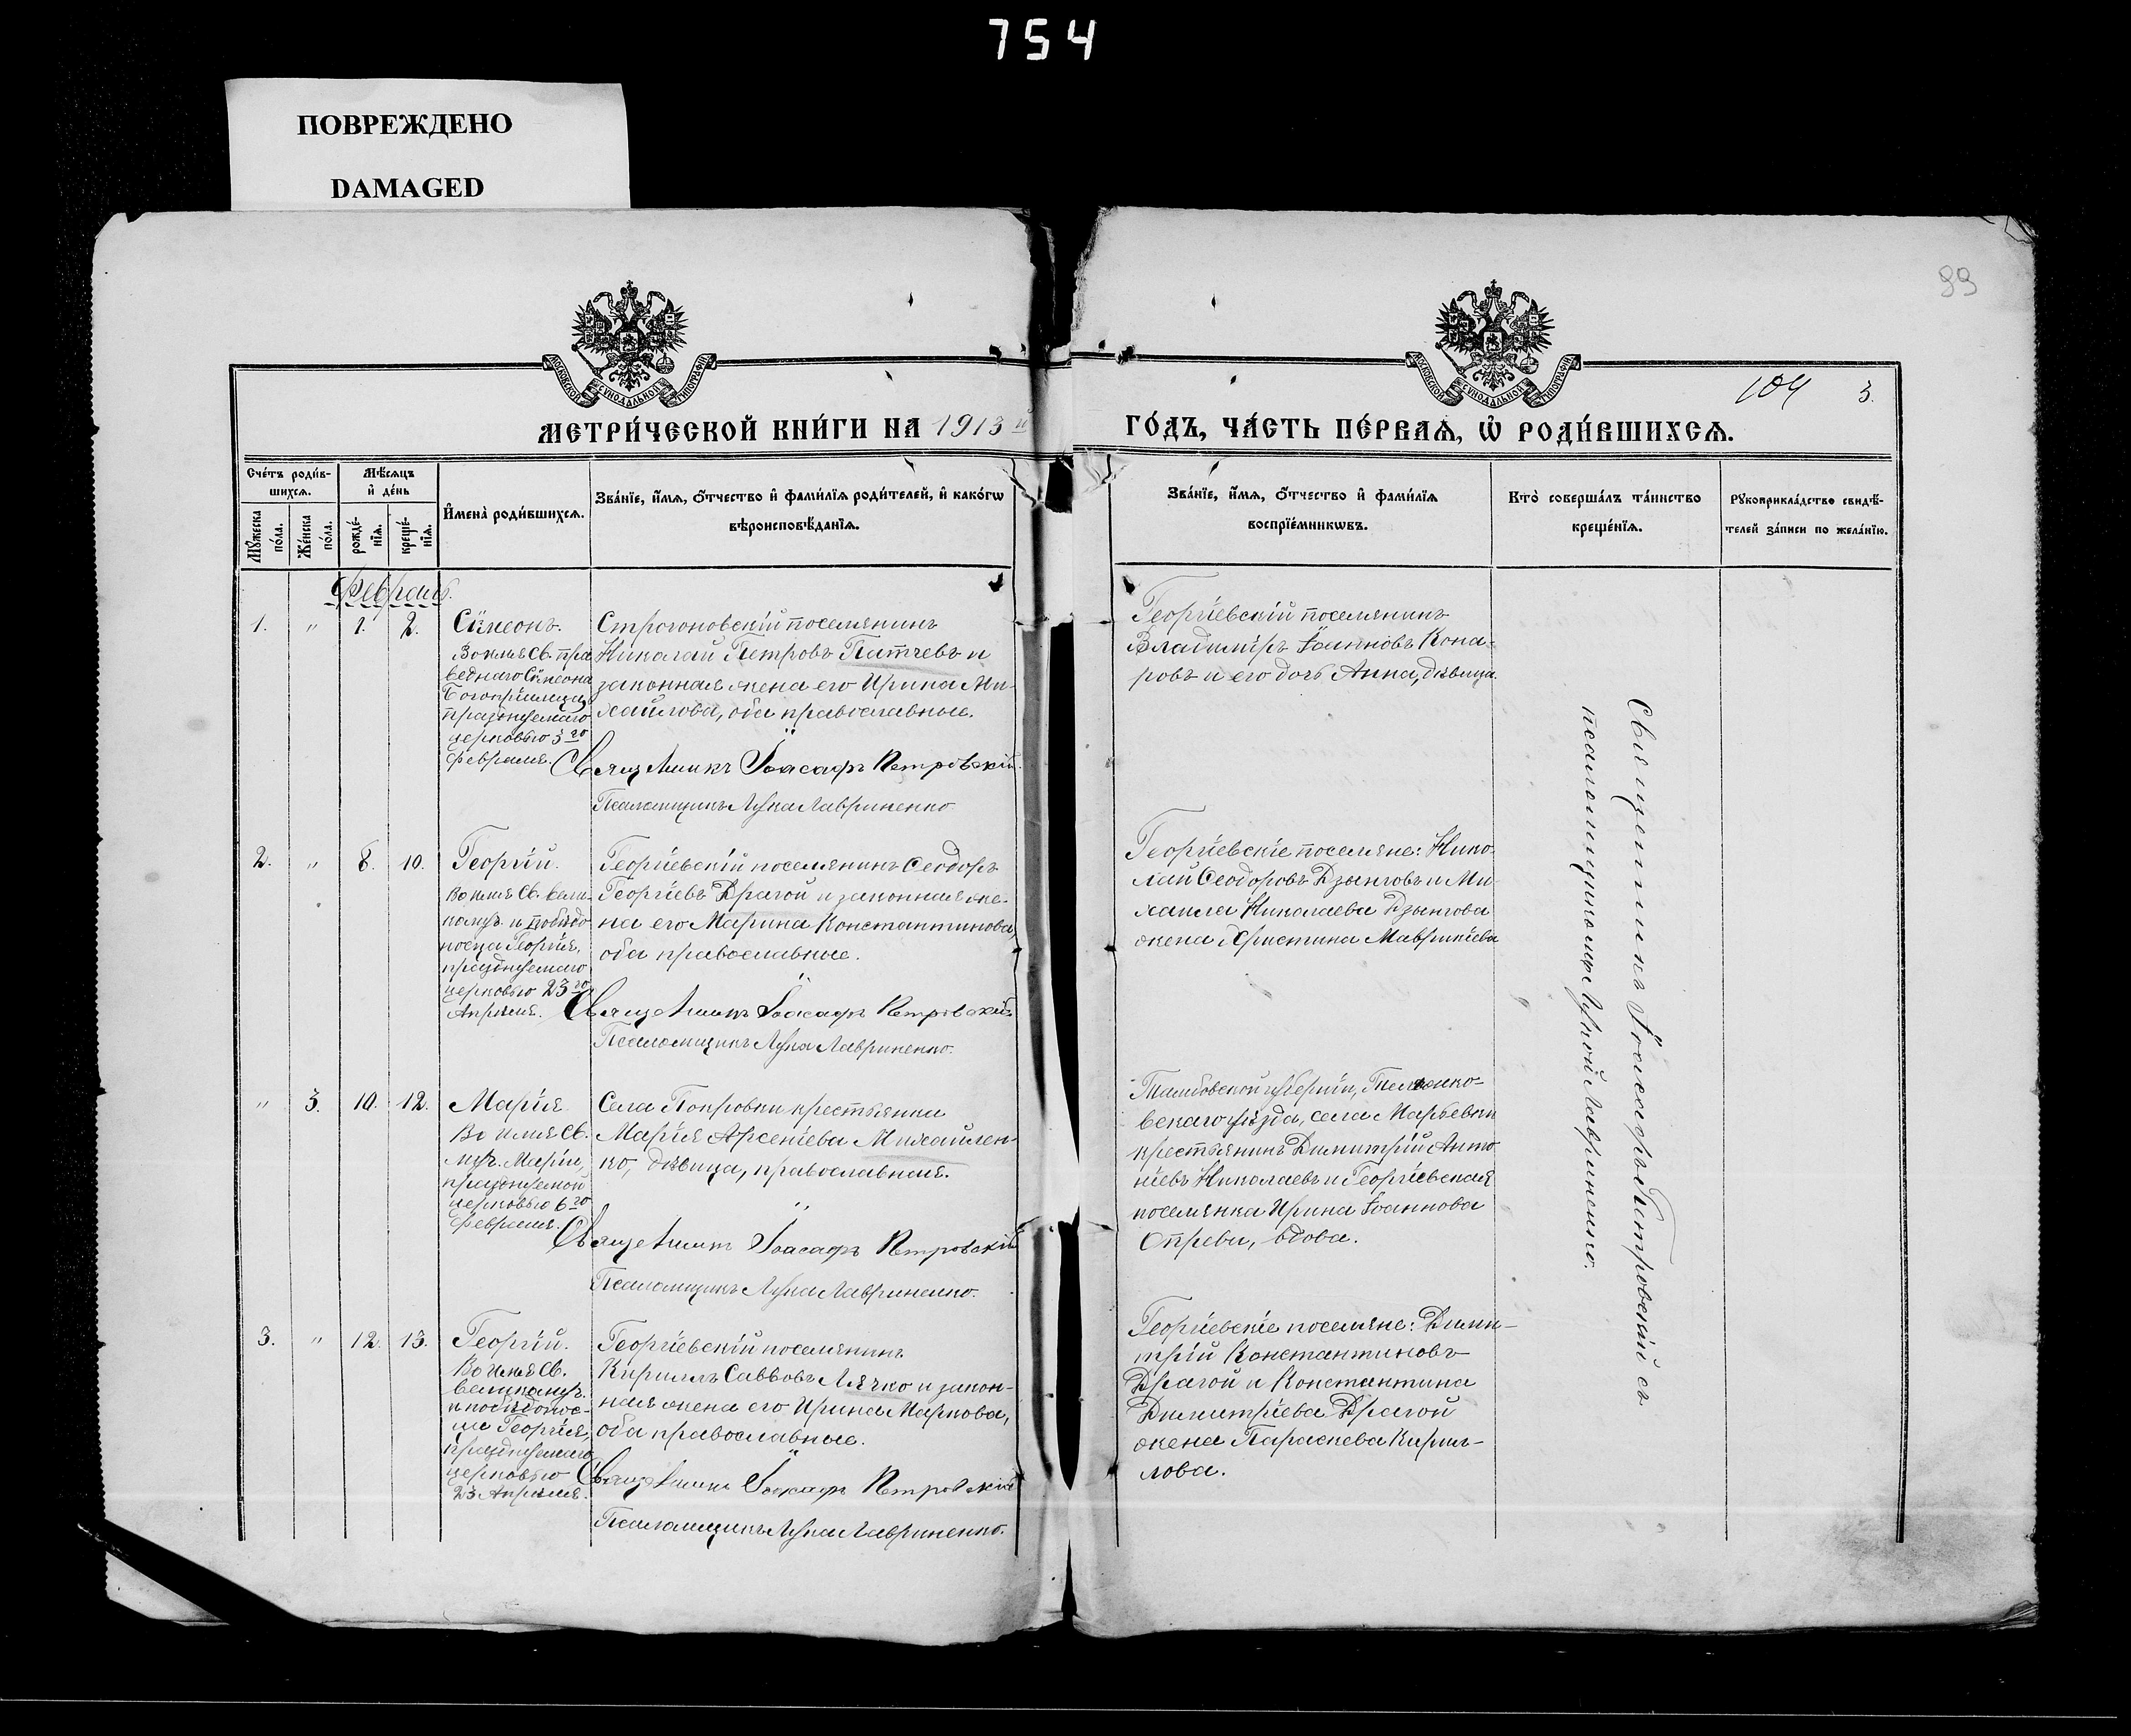 754
ПОВРЕЖДЕНО
DAMAGED
99
104 3.
МОСКОВСКОЙ СѴНОДАЛЬНОЙ ТИПОГРАФІИ
МОСКОВСКОЙ СѴНОДАЛЬНОЙ ТИПОГРАФІИ
МЕТРИ́ЧЕСКОЙ КНИ́ГИ НА 1913й ГО́ДЪ, ЧА́СТЬ ПЕ́РВАѦ, Ѡ҆ РОДИ́ВШИХСѦ.
Сче́тъ роди́в-
шихсѧ.
Мꙋ́жеска по́ла.
Же́нска по́ла.
Мѣ́сѧцъ
и҆ де́нь
рожде́-
нїѧ.
креще́-
нїѧ.
И҆мена̀ роди́вшихсѧ.
Зва́нїе, и҆́мѧ, ѻ҆́тчество и҆ фами́лїѧ роди́телей, и҆ како́гѡ
вѣроисповѣ́данїѧ.
Зва́нїе, и҆́мѧ, ѻ҆́тчество и҆ фами́лїѧ
воспрїе́мникѡвъ.
Кто̀ соверша́лъ та́инство
креще́нїѧ.
Рꙋкоприкла́дство свидѣ́-
телей за́писи по жела́нїю.
Февраль.
1. " 1. 2.
Сѵмеонъ.
Во имя Св. пра
веднаго Сѵмеона
Богопріимца,
празднуемаго
церковью 3го
февраля.
Строгоновскій поселянинъ
Николай Петровъ Патчевъ и
законная жена его Ирина Ми-
хайлова, оба православные.
Священникъ Іоасафъ Петровскій.
Псаломщикъ Лука Лавриненко
Георгіевскій поселянинъ
Владиміръ Іоанновъ Кона-
ровъ и его дочь Анна, дѣвица.
2. " 8. 10.
Георгій.
Во имя Св. вели-
комуч. и побѣдо
носца Георгія,
празднуемаго
церковью 23го
Апрѣля.
Георгіевскій поселянинъ Ѳеодоръ
Георгіевъ Драгой и законная же-
на его Марина Константинова,
оба православные.
Священникъ Іоасафъ Петровскій
Псаломщикъ Лука Лавриненко.
Георгіевскіе поселяне: Нико-
лай Ѳеодоровъ Дзынговъ и Ми-
хаила Николаева Дзынгова
жена Христина Маврикіева
" 3. 10. 12.
Марія
Во имя Св.
муч. Маріи,
празднуемой
церковью 6го
февраля.
Села Покровки крестьянка
Марія Арсеніева Михайлен-
ко, дѣвица, православная.
Священникъ Іоасафъ Петровскій
Псаломщикъ Лука Лавриненко.
Тамбовской губерніи,
вскаго уѣзда, села Марьевки
крестьянинъ Димитрій Анто
ніевъ Николаевъ и Георгіевская
поселянка Ирина Іоаннова
Опреви, вдова.
3. " 12. 13.
Георгій.
Во имя Св.
великомуч.
и побѣдонос-
ца Георгія,
празднуемаго
церковью
23 Апрѣля.
Георгіевскій поселянинъ
Кириллъ Саввовъ Лячко и закон-
ная жена его Ирина Маркова,
оба православные.
Священникъ Іоасафъ Петровскій
Псаломщикъ Лука Лавриненко.
Георгіевскіе поселяне: Дими-
трій Константиновъ
Драгой и Константина
Димитріева Драгой
жена Параскева Кирил-
лова.
Священникъ Іоасафъ Петровскій съ
псаломщикомъ Лукой Лавриненко.